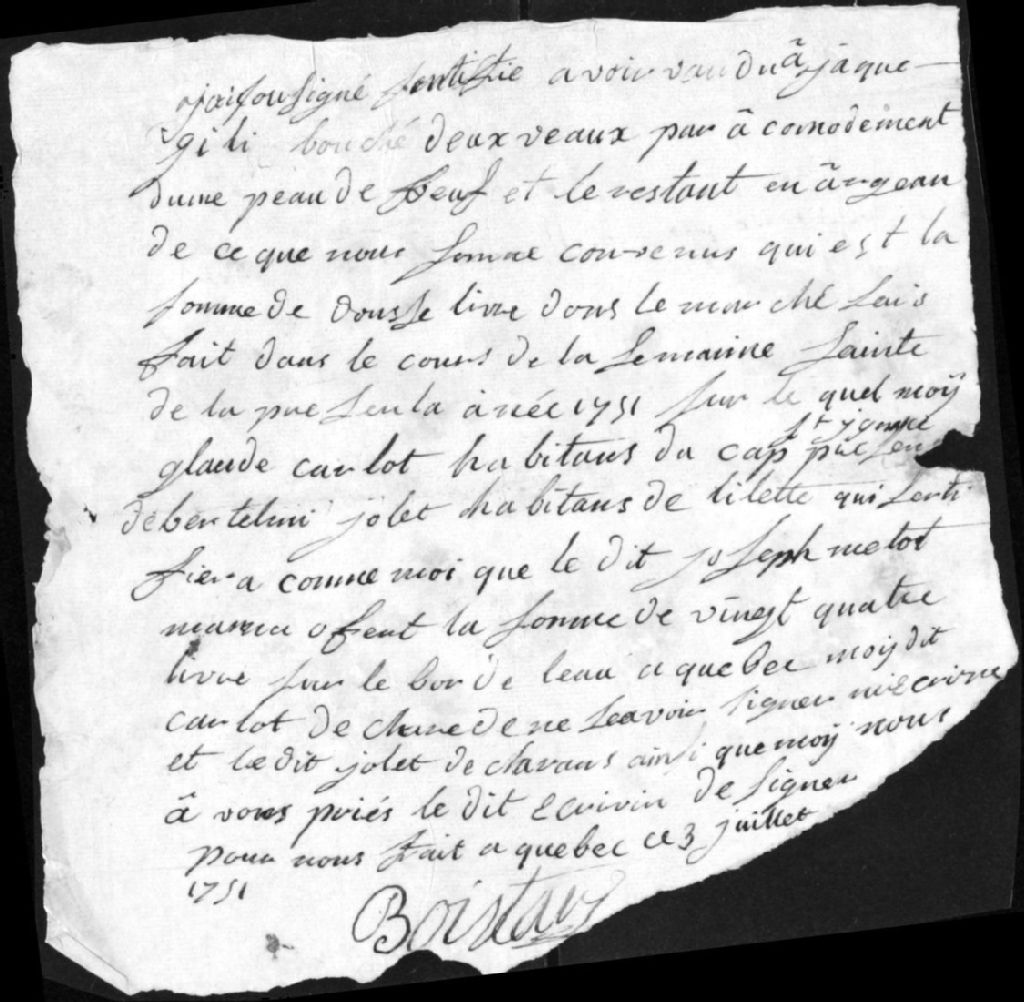 jai sousigné sertifie avoir vandu â jâque
gili bouché deux veaux par â comodement
dune peau de beuf et le restant en ârgean
de ce que nous somme convenus qui est la
somme de dousse livre dons le marché sais
fait dans le cours de la semainne sainte
de la pre senta ànéé 1751 sur le quel moÿ
st ygnace
glaude carlot habitans du cap pre sen
de bertelmi jolet habitans de lilette qui serti
fiera comme moi que le dit joseph metot
manra ofert la somme de vingt quatre
livre sur le bor de leau a quebec moy dit
carlot de clare de ne scavoir signer ni ecrire
et le dit jolet de clarans ainsi que moÿ nous
â vons priés le dit ecrivin de signer
pour nous fait a quebec ce 3 juillet
1751